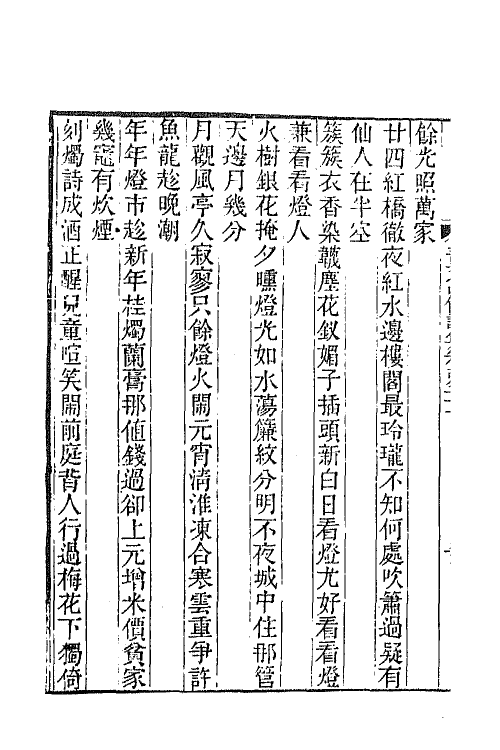 餘光照萬家
廿四紅橋徹夜紅水邊樓閣最玲瓏不知何處吹簫過疑有
仙人在半空
簇簇衣香染韈塵花釵媚子插頭新白日看燈尤好看看燈
兼看看燈人
火樹銀花掩夕曛燈光如水蕩簾紋分明不夜城中住那管
天邊月幾分
月觀風亭久寂寥只餘燈火鬧元宵淸淮凍合寒雲重爭許
魚龍趁晚潮
年年燈市趁新年桂燭蘭膏那値錢過卻上元增米價貧家
幾寵有炊煙
刻燭詩成酒正醒兒童喧笑鬧前庭背人行過梅花下獨倚